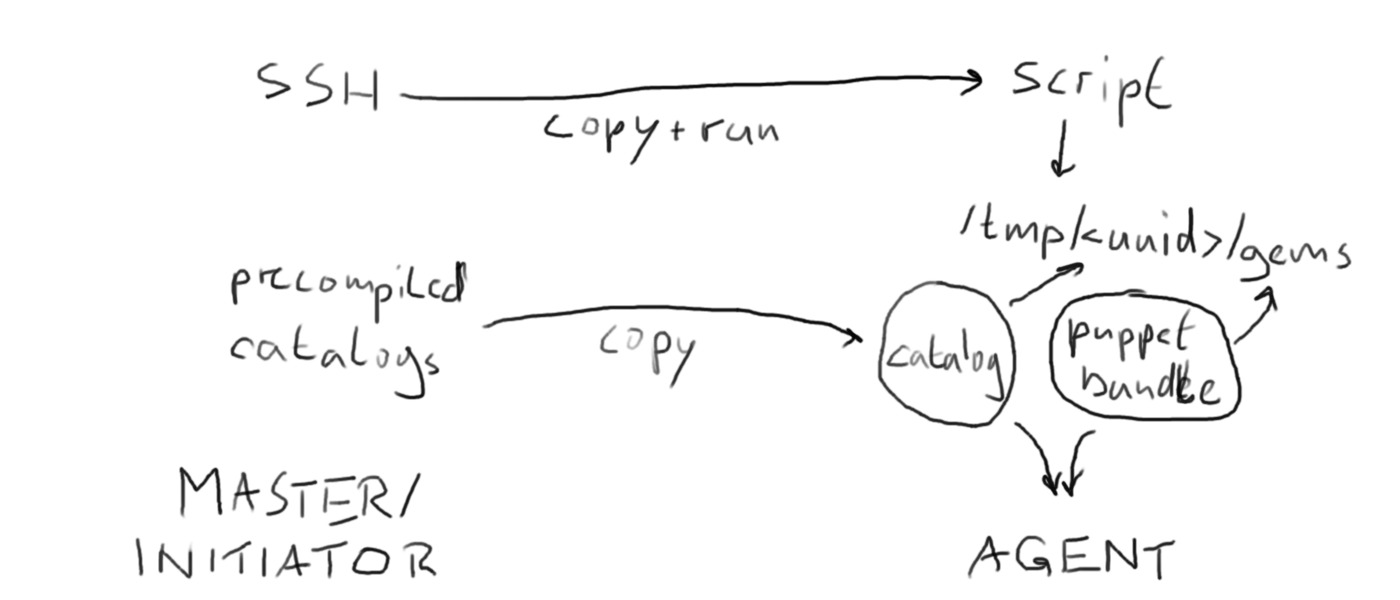 SSH
copy + run
script
/tmp/<uuid>/gems
precompiled
catalogs
copy
catalog
puppet
bundle
MASTER/
INITIATOR
AGENT